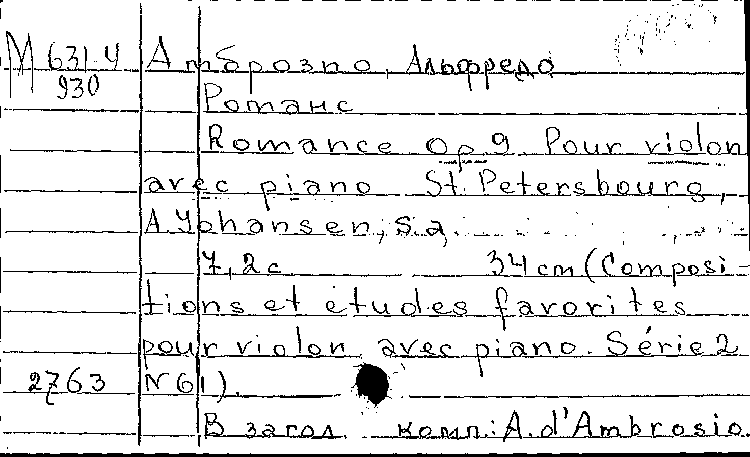 М 631.4 Амброзио, Альфредо
930
Романс
Romance Op 9. Pour violon
avec piano St. Petersbourg,
A. Johansen, s.a.
7, 2 с 34 cm (Composi-
tions et etudes favorites
pour violon avec piano. Série 2
2763 N 61).
В загол. комп.: A. d'Ambrosio.